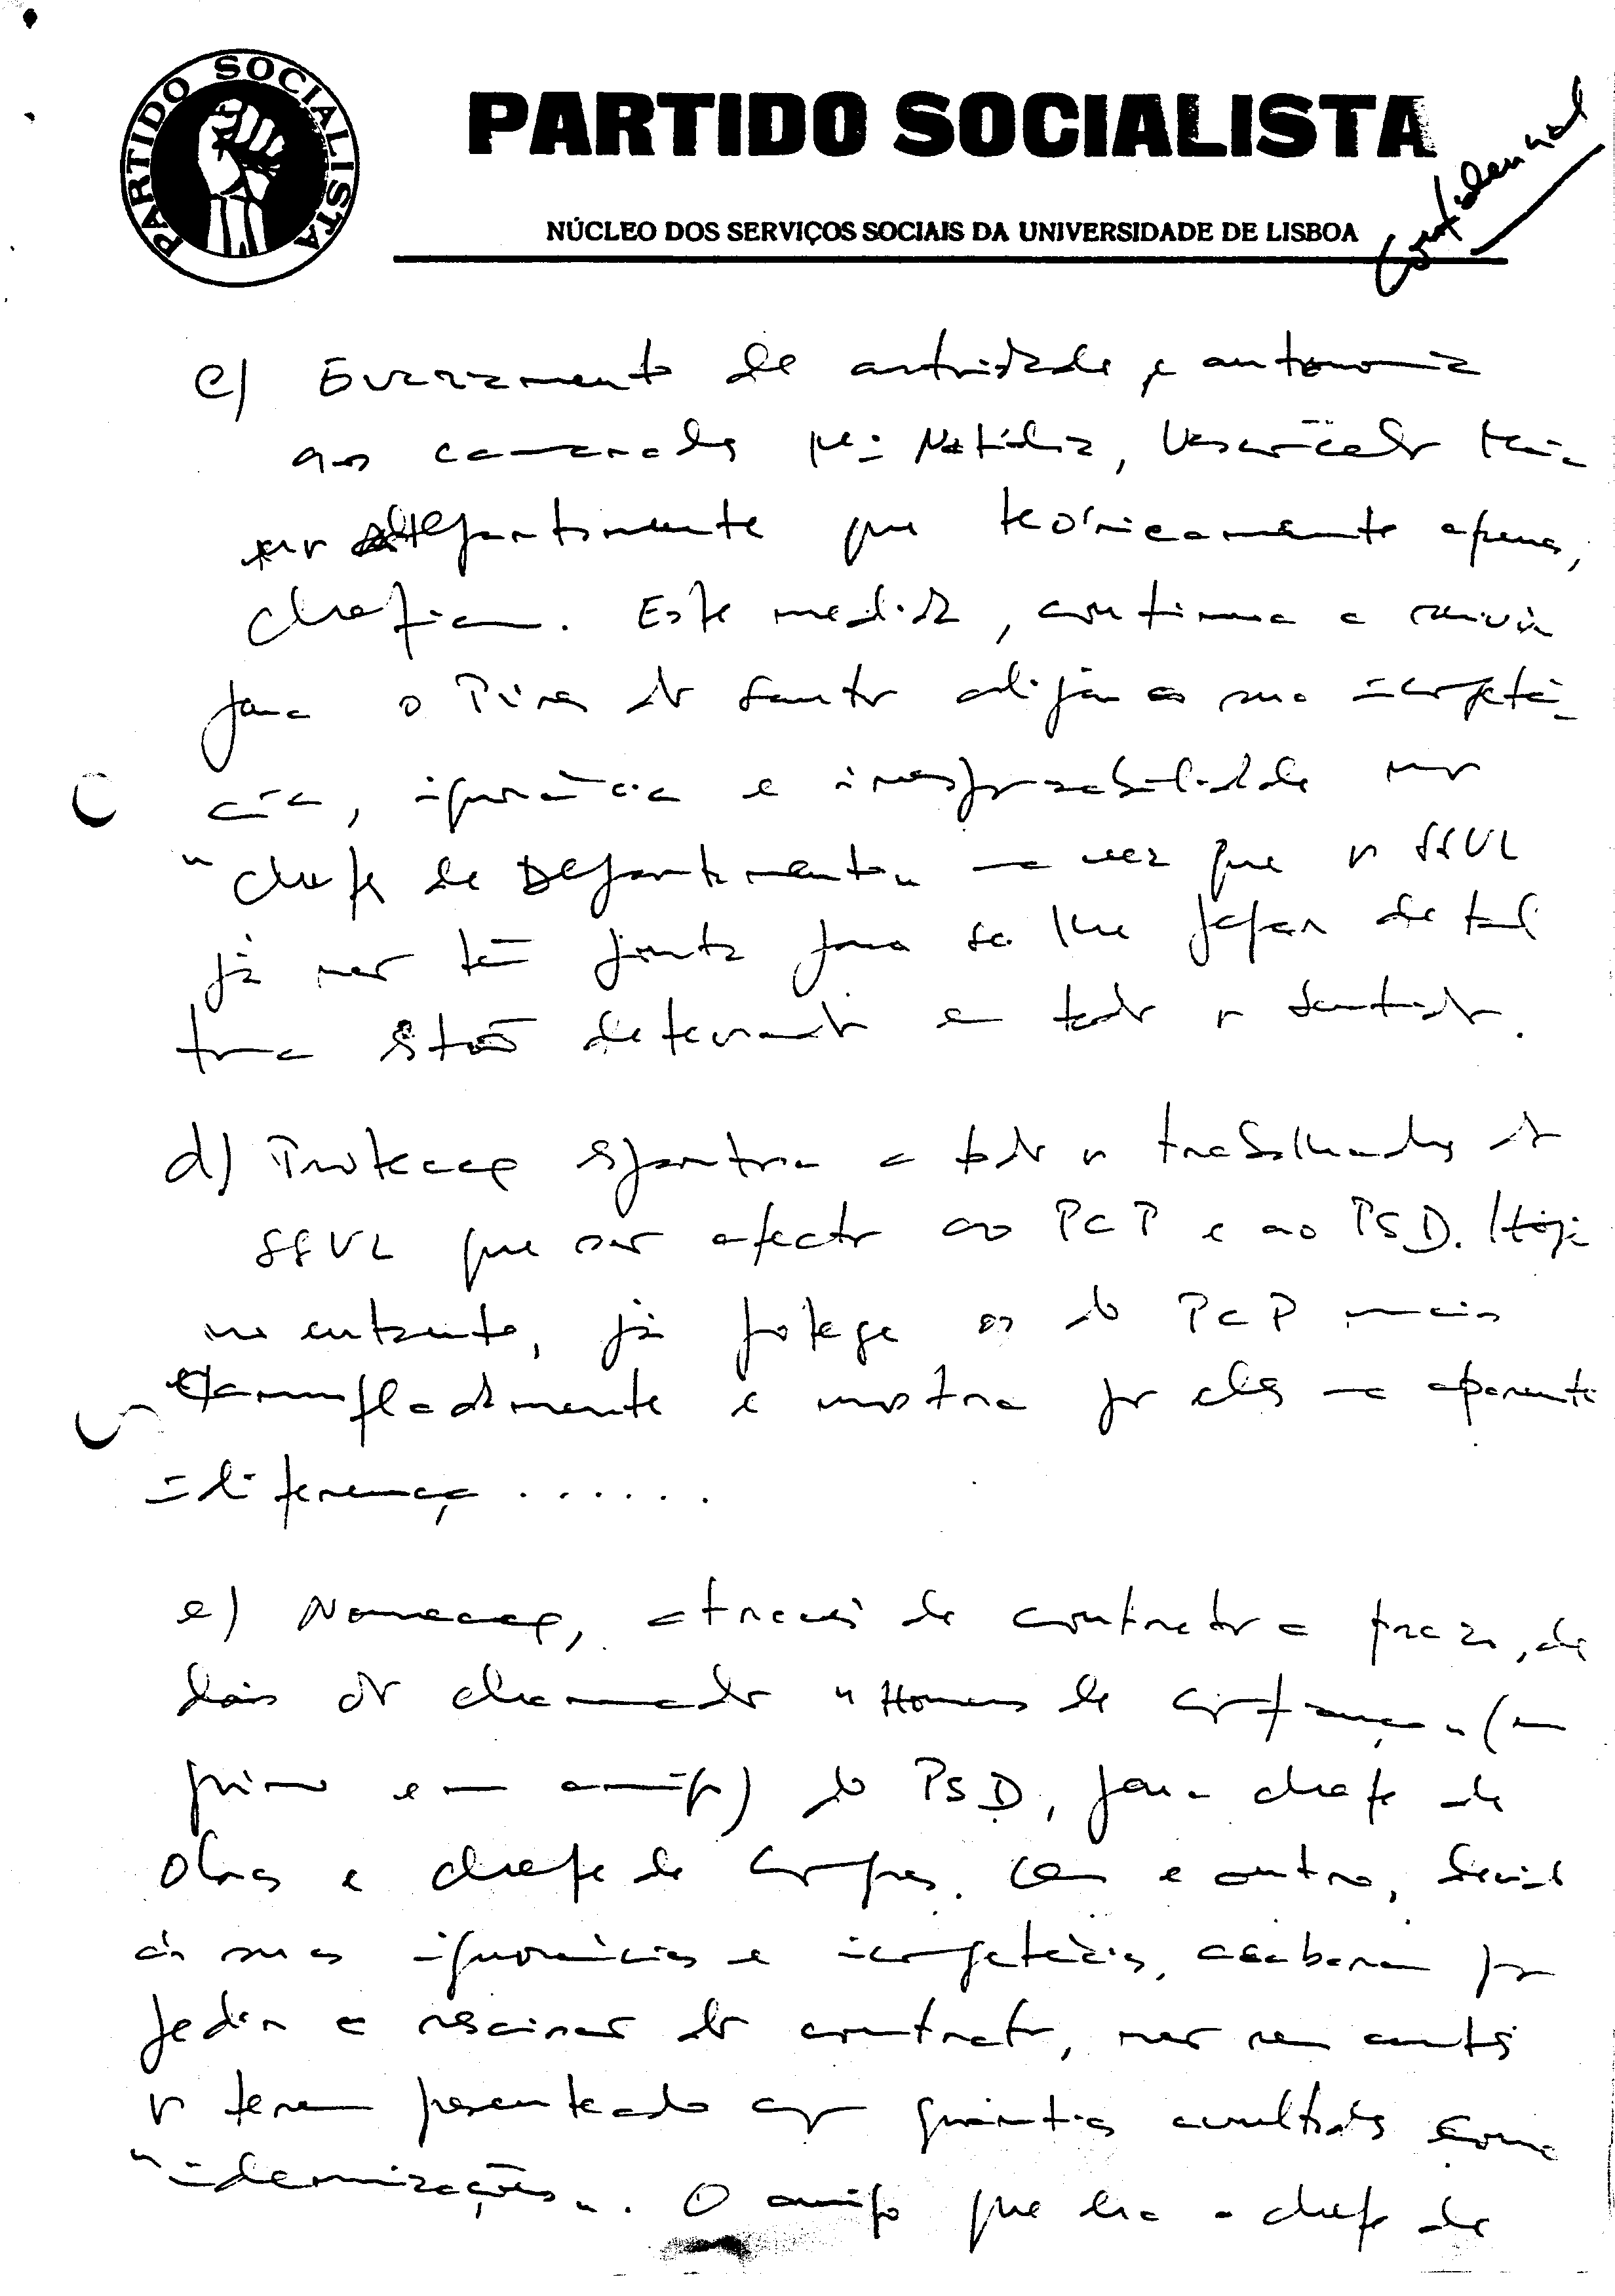 PARTIDO SOCIALISTA
PARTIDO SOCIALISTA
Confidencial
NÚCLEO DOS SERVIÇOS SOCIAIS DA UNIVERSIDADE DE LISBOA
c) Esvaziamento de autoridade e autonomia
aos camaradas
departamento que teóricamente apenas,
chefiam. Esta medida, continua a servir
para o Pires dos Santos alijar as sua incompetên-
cia, ignorância e irresponsabilidade nos
"chefes de Departamento" uma vez que os SSUL
já não têm ponta para se lhe pegar de tal
forma estão deteriorados em todos os sentidos.
d) Protecção espontânea a todos os trabalhadores dos
SSUL que são afectos ao PCP e ao PSD. Hoje
no entanto, já protege os do PCP mais
camufladamente e mostra por eles uma aparente
indiferença ......
e) Nomeação, através de contratos a prazo, de
dois dos chamados "Homens de confiança" (um
primo e um amigo) do PSD, para chefe de
obras e chefe de compras. Um e outro, devido
às suas ignorâncias e incompetências, acabaram por
pedir a rescisão dos contratos, não sem antes
os terem presenteado com quantias avultadas como
"indemnizações". O amigo que era o chefe de